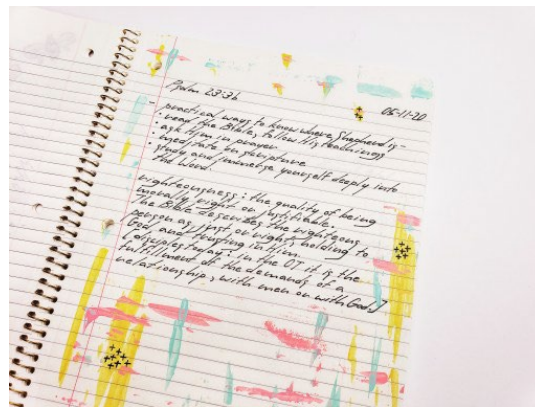 Psalm 23:3b
05-11-20
- practical ways to know where Shepherd is -
• read the Bible, follow His teachings
• ask Him in prayer
• meditate on scripture
study and immerse yourself deeply into
the Word.
righteousness: the quality of being
morally right or justifiable.
The Bible describes the righteous
person as just or right, holding to
God and trusting in Him.
[disciplestoday: in the OT it is the
fulfillment of the demands of a
relationship, with men or with God]